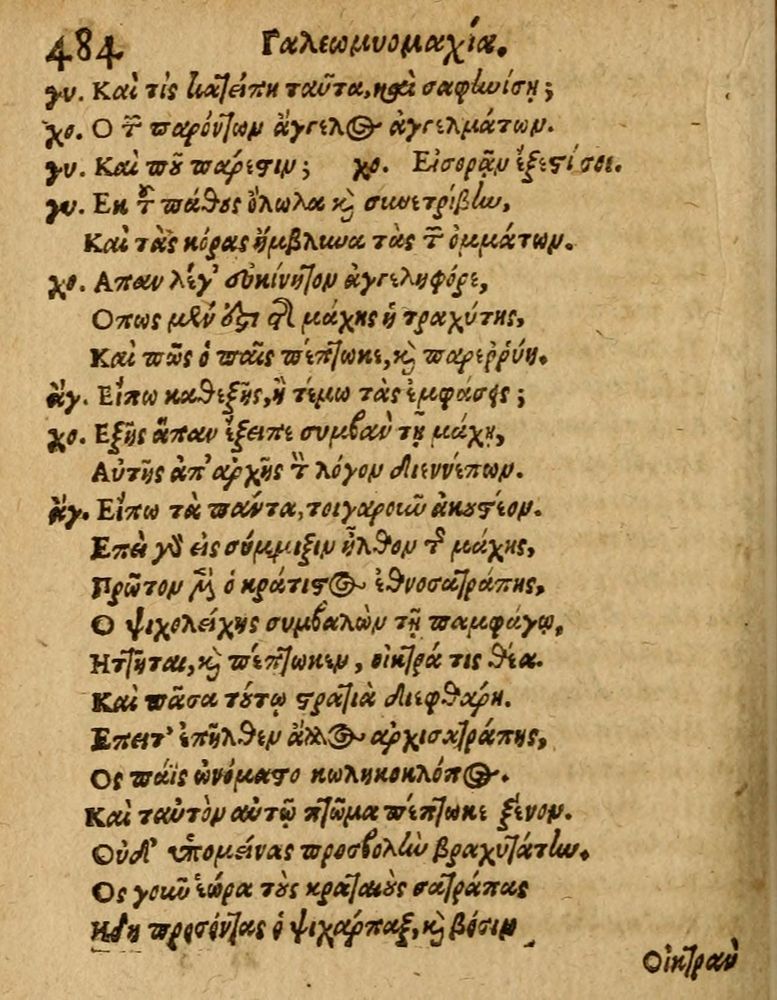 484 Γαλεωμυομαχία.
γυ. Καὶ τίς κατείπη ταῦτα, καὶ σαφηνίσῃ;
χο. Ο τῶν παρόντων ἄγγελος ἀγγελμάτων.
γυ. Καὶ ποῦ πάρεστιν; χο. Εἰσορᾷν ἔξεστί σοι.
γυ. Εκ τοῦ πάθους ὄλωλα καὶ συνετρίβην,
Καὶ τὰς κόρας ἤμβλυνα τὰς τῶν ὀμμάτων.
χο. Απαν λέγ' εὐκίνητον ἀγγεληφόρε,
Οπως μὲν ἐστι τῆς μάχης ἡ τραχύτης,
Καὶ πῶς ὁ παῖς πέπτωκε, καὶ παρεῤῥύη.
ἄγ. Εἴπω καθεξῆς, ἢ τέμω τὰς ἐμφάσεις;
χο. Εξῆς ἅπαν ἔξειπε συμβὰν τῇ μάχῃ,
Αὐτῆς ἀπ' ἀρχῆς τὸν λόγον διεννέπων.
ἄγ. Εἴπω τὰ πάντα, τοιγαροῦν ἀκουστέον.
Επεὶ γὰρ εἰς σύμμιξιν ἦλθον τῆς μάχης,
Πρῶτον μὲν ὁ κράτιστος ἐθνοσατράπης,
Ο ψιχολείχης συμβαλὼν τῇ παμφάγῳ,
Ητῆηται, καὶ πέπτωκεν, οἰκτρά τις θέα.
Καὶ πᾶσα τούτῳ στρατιὰ διεφθάρη.
Επειτ' ἐπῆλθεν ἄλλος ἀρχισατράπης,
Ος πάϊς ὠνόμαστο κωληκοκλόπος.
Καὶ ταὐτὸν αὐτῷ πτῶμα πέπτωκε ξένον.
Οὐδ' ὑπομείνας προσβολὴν βραχυτάτην.
Ος γοῦν ἑώρα τοὺς κραταιοὺς σατράπας
Ηδη πεσόντας ὁ ψιχάρπαξ, καὶ βόσιν
Οἰκτρὰν